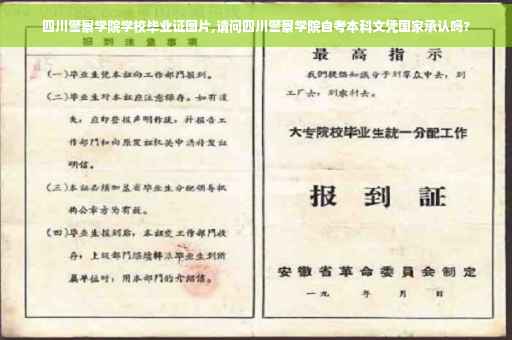 四川警察学院学校毕业证图片,请问四川警察学院自考本科文凭国家承认吗?
报到注意事项
(一)毕业生凭本证向工作部门报到。
(二)毕业生对本证应注意保存。如有遗
失,应即登报声明作废,并报告工
作部门和向原发证机关申请补发证
明信。
(三)本证必须加盖省毕业生分配领导机
构公章方为有效。
(四)毕业生报到后,本证交工作部门收
存;上级部门继续转派毕业生到所
属单位时,用本部门的介绍信。
最高指示
我们提倡知识分子到群众中去,到
工厂去,到农村去。
大专院校毕业生统一分配工作
报到证
安徽省革命委员会制定
一九 年 月 日